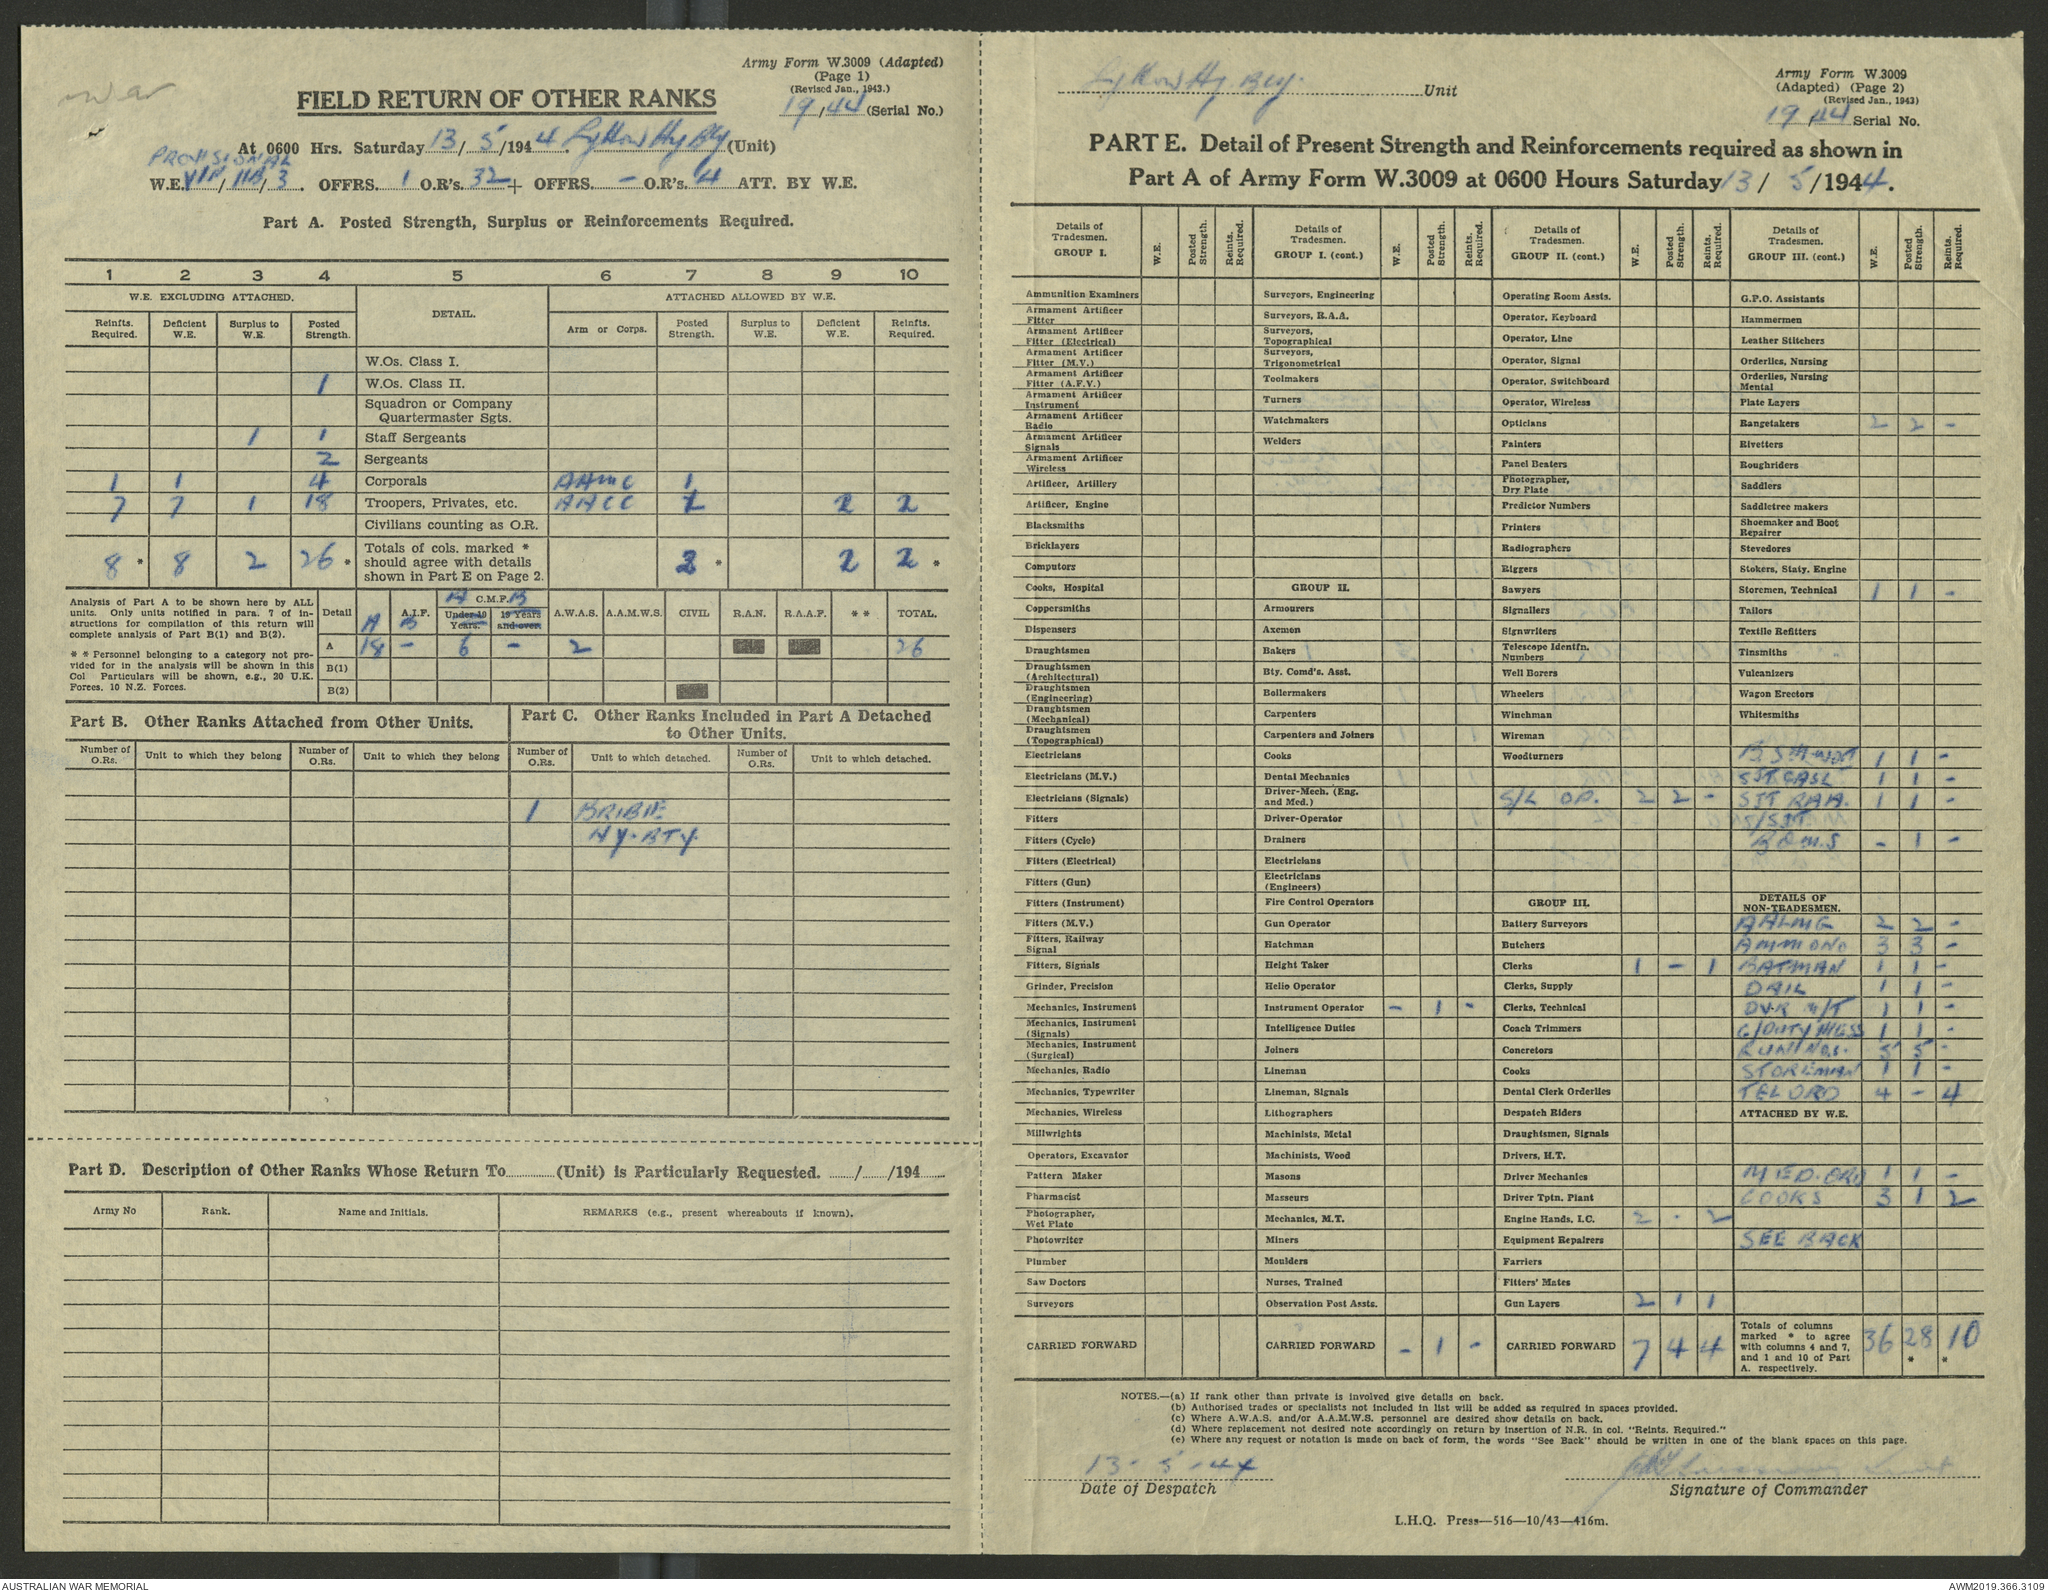 Army Form W.3009 (Adapted)
(Page 1)
(Revised Jan., 1943.)
19/44 (Serial No.)
FIELD RETURN OF OTHER RANKS
At 0600 Hrs. Saturday 13/5/1944. Lytton Hy Bty (Unit)
PROVISIONAL
W.E. VIII/118/3. OFFRS. 1 O.R's. 32 + OFFRS. - O.R's. 4 ATT. BY W.E.
Part A. Posted Strength, Surplus or Reinforcements Required.
1 2 3 4 5 6 7 8 9 10
W.E. EXCLUDING ATTACHED. DETAIL. ATTACHED ALLOWED BY W.E.
Reinfts. Required. Deficient W.E. Surplus to W.E. Posted Strength. Arm or Corps. Posted Strength. Surplus to W.E. Deficient W.E. Reinfts. Required.
W.Os. Class I.
1 W.Os. Class II.
Squadron or Company Quartermaster Sgts.
1 1 Staff Sergeants
2 Sergeants
1 1 4 Corporals AAMC 1
7 7 1 18 Troopers, Privates, etc. AACC 1 2 2
Civilians counting as O.R.
8 * 8 2 26 * Totals of cols. marked * should agree with details shown in Part E on Page 2. 2 * 2 2 *
Analysis of Part A to be shown here by ALL units. Only units notified in para. 7 of instructions for compilation of this return will complete analysis of Part B(1) and B(2).
* * Personnel belonging to a category not provided for in the analysis will be shown in this Col Particulars will be shown, e.g., 20 U.K. Forces. 10 N.Z. Forces.
Detail A A.I.F. B A C.M.F. B Under 19 Years. 19 Years and over. A.W.A.S. A.A.M.W.S. CIVIL R.A.N. R.A.A.F. * * TOTAL.
A 18 - 6 - 2 26
B(1)
B(2)
Part B. Other Ranks Attached from Other Units.
Part C. Other Ranks Included in Part A Detached to Other Units.
Number of O.Rs. Unit to which they belong Number of O.Rs. Unit to which they belong Number of O.Rs. Unit to which detached. Number of O.Rs. Unit to which detached.
1 BRIBIE
HY. BTY.
Part D. Description of Other Ranks Whose Return To (Unit) is Particularly Requested. / /194
Army No Rank. Name and Initials. REMARKS (e.g., present whereabouts if known).
Lytton Hy. Bty. Unit
Army Form W.3009
(Adapted) (Page 2)
(Revised Jan., 1943)
19/44 Serial No.
PART E. Detail of Present Strength and Reinforcements required as shown in
Part A of Army Form W.3009 at 0600 Hours Saturday 13/ 5/1944.
Details of Tradesmen. GROUP I. W.E. Posted Strength. Reints. Required.
Ammunition Examiners
Armament Artificer Fitter
Armament Artificer Fitter (Electrical)
Armament Artificer Fitter (M.V.)
Armament Artificer Fitter (A.F.V.)
Armament Artificer Instrument
Armament Artificer Radio
Armament Artificer Signals
Armament Artificer Wireless
Artificer, Artillery
Artificer, Engine
Blacksmiths
Bricklayers
Computors
Cooks, Hospital
Coppersmiths
Dispensers
Draughtsmen
Draughtsmen (Architectural)
Draughtsmen (Engineering)
Draughtsmen (Mechanical)
Draughtsmen (Topographical)
Electricians
Electricians (M.V.)
Electricians (Signals)
Fitters
Fitters (Cycle)
Fitters (Electrical)
Fitters (Gun)
Fitters (Instrument)
Fitters (M.V.)
Fitters, Railway Signal
Fitters, Signals
Grinder, Precision
Mechanics, Instrument
Mechanics, Instrument (Signals)
Mechanics, Instrument (Surgical)
Mechanics, Radio
Mechanics, Typewriter
Mechanics, Wireless
Millwrights
Operators, Excavator
Pattern Maker
Pharmacist
Photographer, Wet Plate
Photowriter
Plumber
Saw Doctors
Surveyors
CARRIED FORWARD
Details of Tradesmen. GROUP I. (cont.) W.E. Posted Strength. Reints. Required.
Surveyors, Engineering
Surveyors, R.A.A.
Surveyors, Topographical
Surveyors, Trigonometrical
Toolmakers
Turners
Watchmakers
Welders
GROUP II.
Armourers
Axemen
Bakers
Bty. Comd's. Asst.
Boilermakers
Carpenters
Carpenters and Joiners
Cooks
Dental Mechanics
Driver-Mech. (Eng. and Med.)
Driver-Operator
Drainers
Electricians
Electricians (Engineers)
Fire Control Operators
Gun Operator
Hatchman
Height Taker
Helio Operator
Instrument Operator - 1 -
Intelligence Duties
Joiners
Lineman
Lineman, Signals
Lithographers
Machinists, Metal
Machinists, Wood
Masons
Masseurs
Mechanics, M.T.
Miners
Moulders
Nurses, Trained
Observation Post Assts.
CARRIED FORWARD - 1 -
Details of Tradesmen. GROUP II. (cont.) W.E. Posted Strength. Reints. Required.
Operating Room Assts.
Operator, Keyboard
Operator, Line
Operator, Signal
Operator, Switchboard
Operator, Wireless
Opticians
Painters
Panel Beaters
Photographer, Dry Plate
Predictor Numbers
Printers
Radiographers
Riggers
Sawyers
Signallers
Signwriters
Telescope Identfn. Numbers
Well Borers
Wheelers
Winchman
Wireman
Woodturners
S/L OP. 2 2 -
GROUP III.
Battery Surveyors
Butchers
Clerks 1 - 1
Clerks, Supply
Clerks, Technical
Coach Trimmers
Concretors
Cooks
Dental Clerk Orderlies
Despatch Riders
Draughtsmen, Signals
Drivers, H.T.
Driver Mechanics
Driver Tptn. Plant
Engine Hands, I.C. 2 - 2
Equipment Repairers
Farriers
Fitters' Mates
Gun Layers 2 1 1
CARRIED FORWARD 7 4 4
Details of Tradesmen. GROUP III. (cont.) W.E. Posted Strength. Reints. Required.
G.P.O. Assistants
Hammermen
Leather Stitchers
Orderlies, Nursing
Orderlies, Nursing Mental
Plate Layers
Rangetakers 2 2 -
Rivetters
Roughriders
Saddlers
Saddletree makers
Shoemaker and Boot Repairer
Stevedores
Stokers, Staty. Engine
Storemen, Technical 1 1 -
Tailors
Textile Refitters
Tinsmiths
Vulcanizers
Wagon Erectors
Whitesmiths
B.S.M. 1 1 -
SJT. CASL 1 1 -
SJT RAA. 1 1 -
S/SJT
B.Q.M.S - 1 -
DETAILS OF NON-TRADESMEN.
AALMG 2 2 -
AMMONO 3 3 -
BATMAN 1 1 -
1 1 -
DVR M/T 1 1 -
G/DUTY MESS 1 1 -
GUN NOS. 5 5 -
STOREMAN 1 1 -
TEL ORD 4 - 4
ATTACHED BY W.E.
MED. ORD 1 1 -
COOKS 3 1 2
SEE BACK
Totals of columns marked * to agree with columns 4 and 7, and 1 and 10 of Part A. respectively. 36 28 * 10 *
NOTES.—(a) If rank other than private is involved give details on back.
(b) Authorised trades or specialists not included in list will be added as required in spaces provided.
(c) Where A.W.A.S. and/or A.A.M.W.S. personnel are desired show details on back.
(d) Where replacement not desired note accordingly on return by insertion of N.R. in col. "Reints. Required."
(e) Where any request or notation is made on back of form, the words "See Back" should be written in one of the blank spaces on this page.
13-5-44
Date of Despatch
Signature of Commander
L.H.Q. Press—516—10/43—416m.
AUSTRALIAN WAR MEMORIAL
AWM2019.366.3109